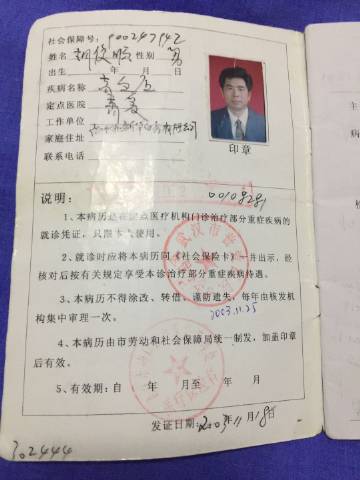 社会保障号：900247942
姓名 胡俊顺 性别 男
出生 年 月 日
疾病名称
定点医院
工作单位
家庭住址
联系电话
印章
说明：
00108281
1、本病历是在定点医疗机构门诊治疗部分重症疾病的
就诊凭证，只限本人使用。
2、就诊时应将本病历同《社会保险卡》一并出示，经
核对后按有关规定享受本诊治疗部分重症疾病待遇。
3、本病历不得涂改、转借，谨防遗失，每年由核发机
构集中审理一次。
2003.11.25
4、本病历由市劳动和社会保障局统一制发，加盖印章
后有效。
5、有效期：自 年 月至 年 月
发证日期：2003年11月18日
302444